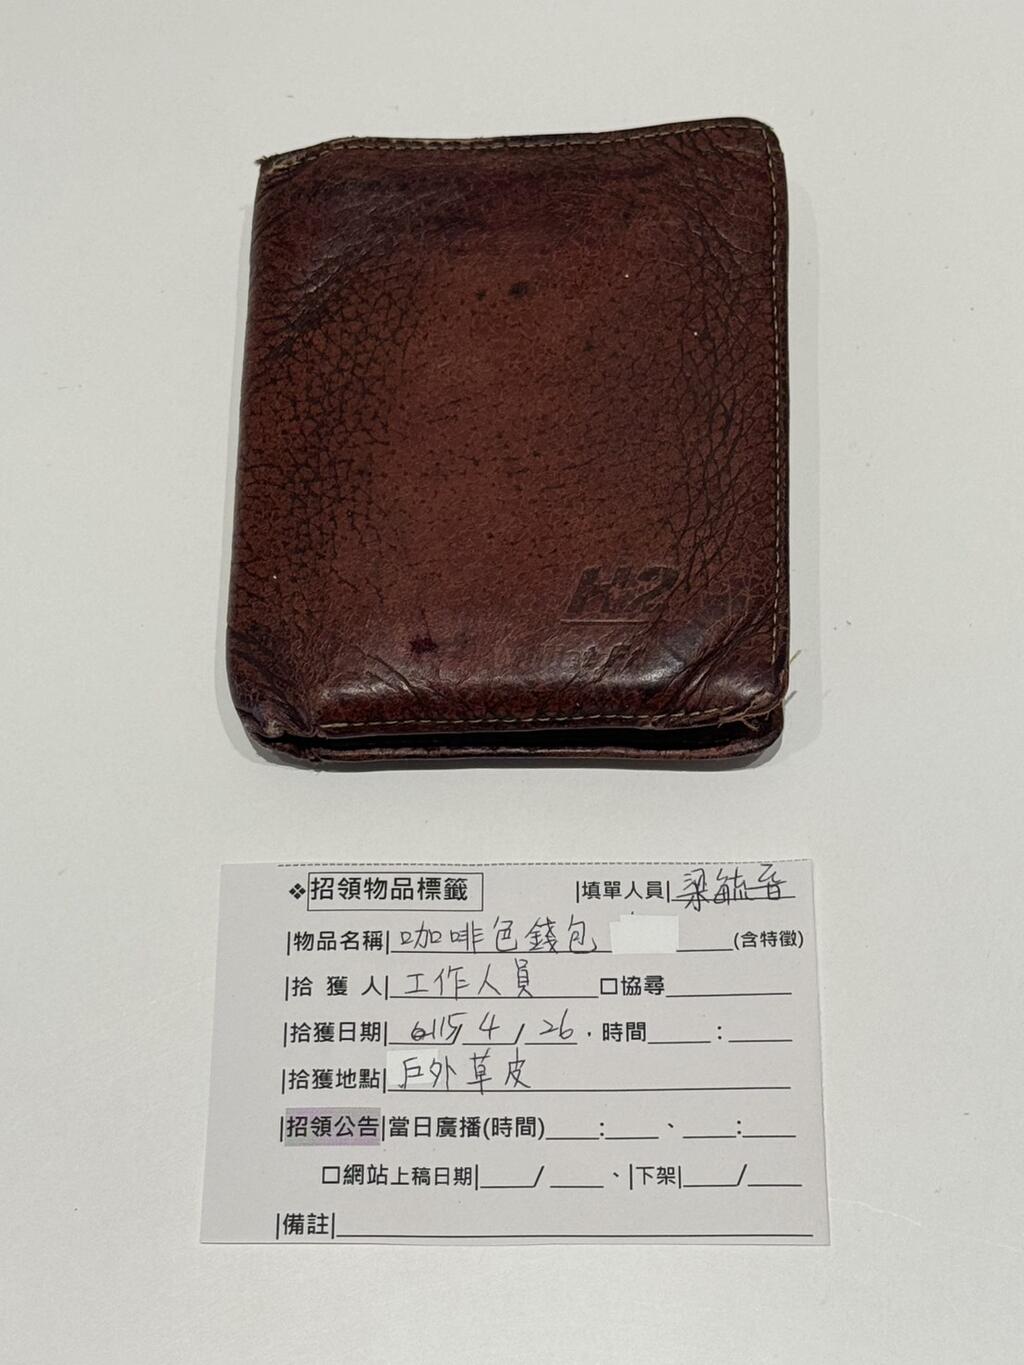 H2
❖招領物品標籤 |填單人員|梁毓晉
|物品名稱|咖啡色錢包____(含特徵)
|拾 獲 人|工作人員____□協尋____
|拾獲日期|115/4/26.時間____:____
|拾獲地點|戶外草皮
|招領公告|當日廣播(時間)____:____、____:____
□網站上稿日期|____/____、|下架|____/____
|備註|____